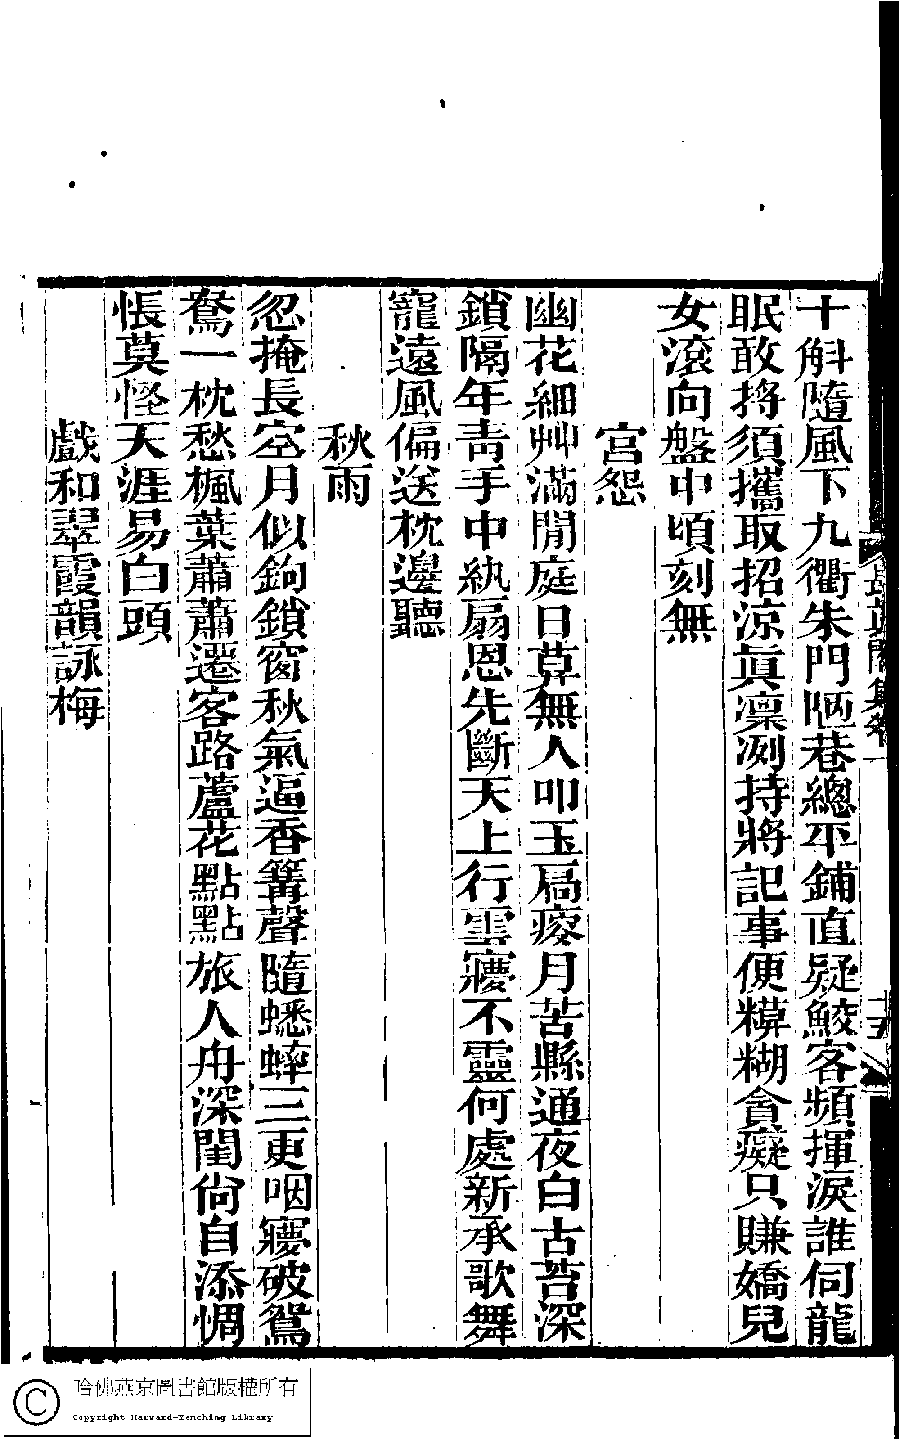 十斛隨風下九衢朱門陋巷總平鋪直疑鮫客頻揮淚誰伺龍
眠敢將須攜取招涼眞凜冽持將記事便糢糊貪癡只賺嬌兒
女滾向盤中頃刻無
宮怨
幽花細艸滿閒庭日莫無人叩玉扃瘦月苦縣通夜白古苔深
鎖隔年青手中紈扇恩先斷天上行雲寱不靈何處新承歌舞
寵遠風偏送枕邊聽
秋雨
忽掩長空月似鉤鎖窗秋氣逼香篝聲隨蟋蟀三更咽寱破鴛
鴦一枕愁楓葉蕭蕭遷客路蘆花點點旅人舟深閨尙自添惆
悵莫怪天涯易白頭
戲和翠霞韻詠梅
十五
哈佛燕京圖書館版權所有
Copyright Harvard-Yenching Library